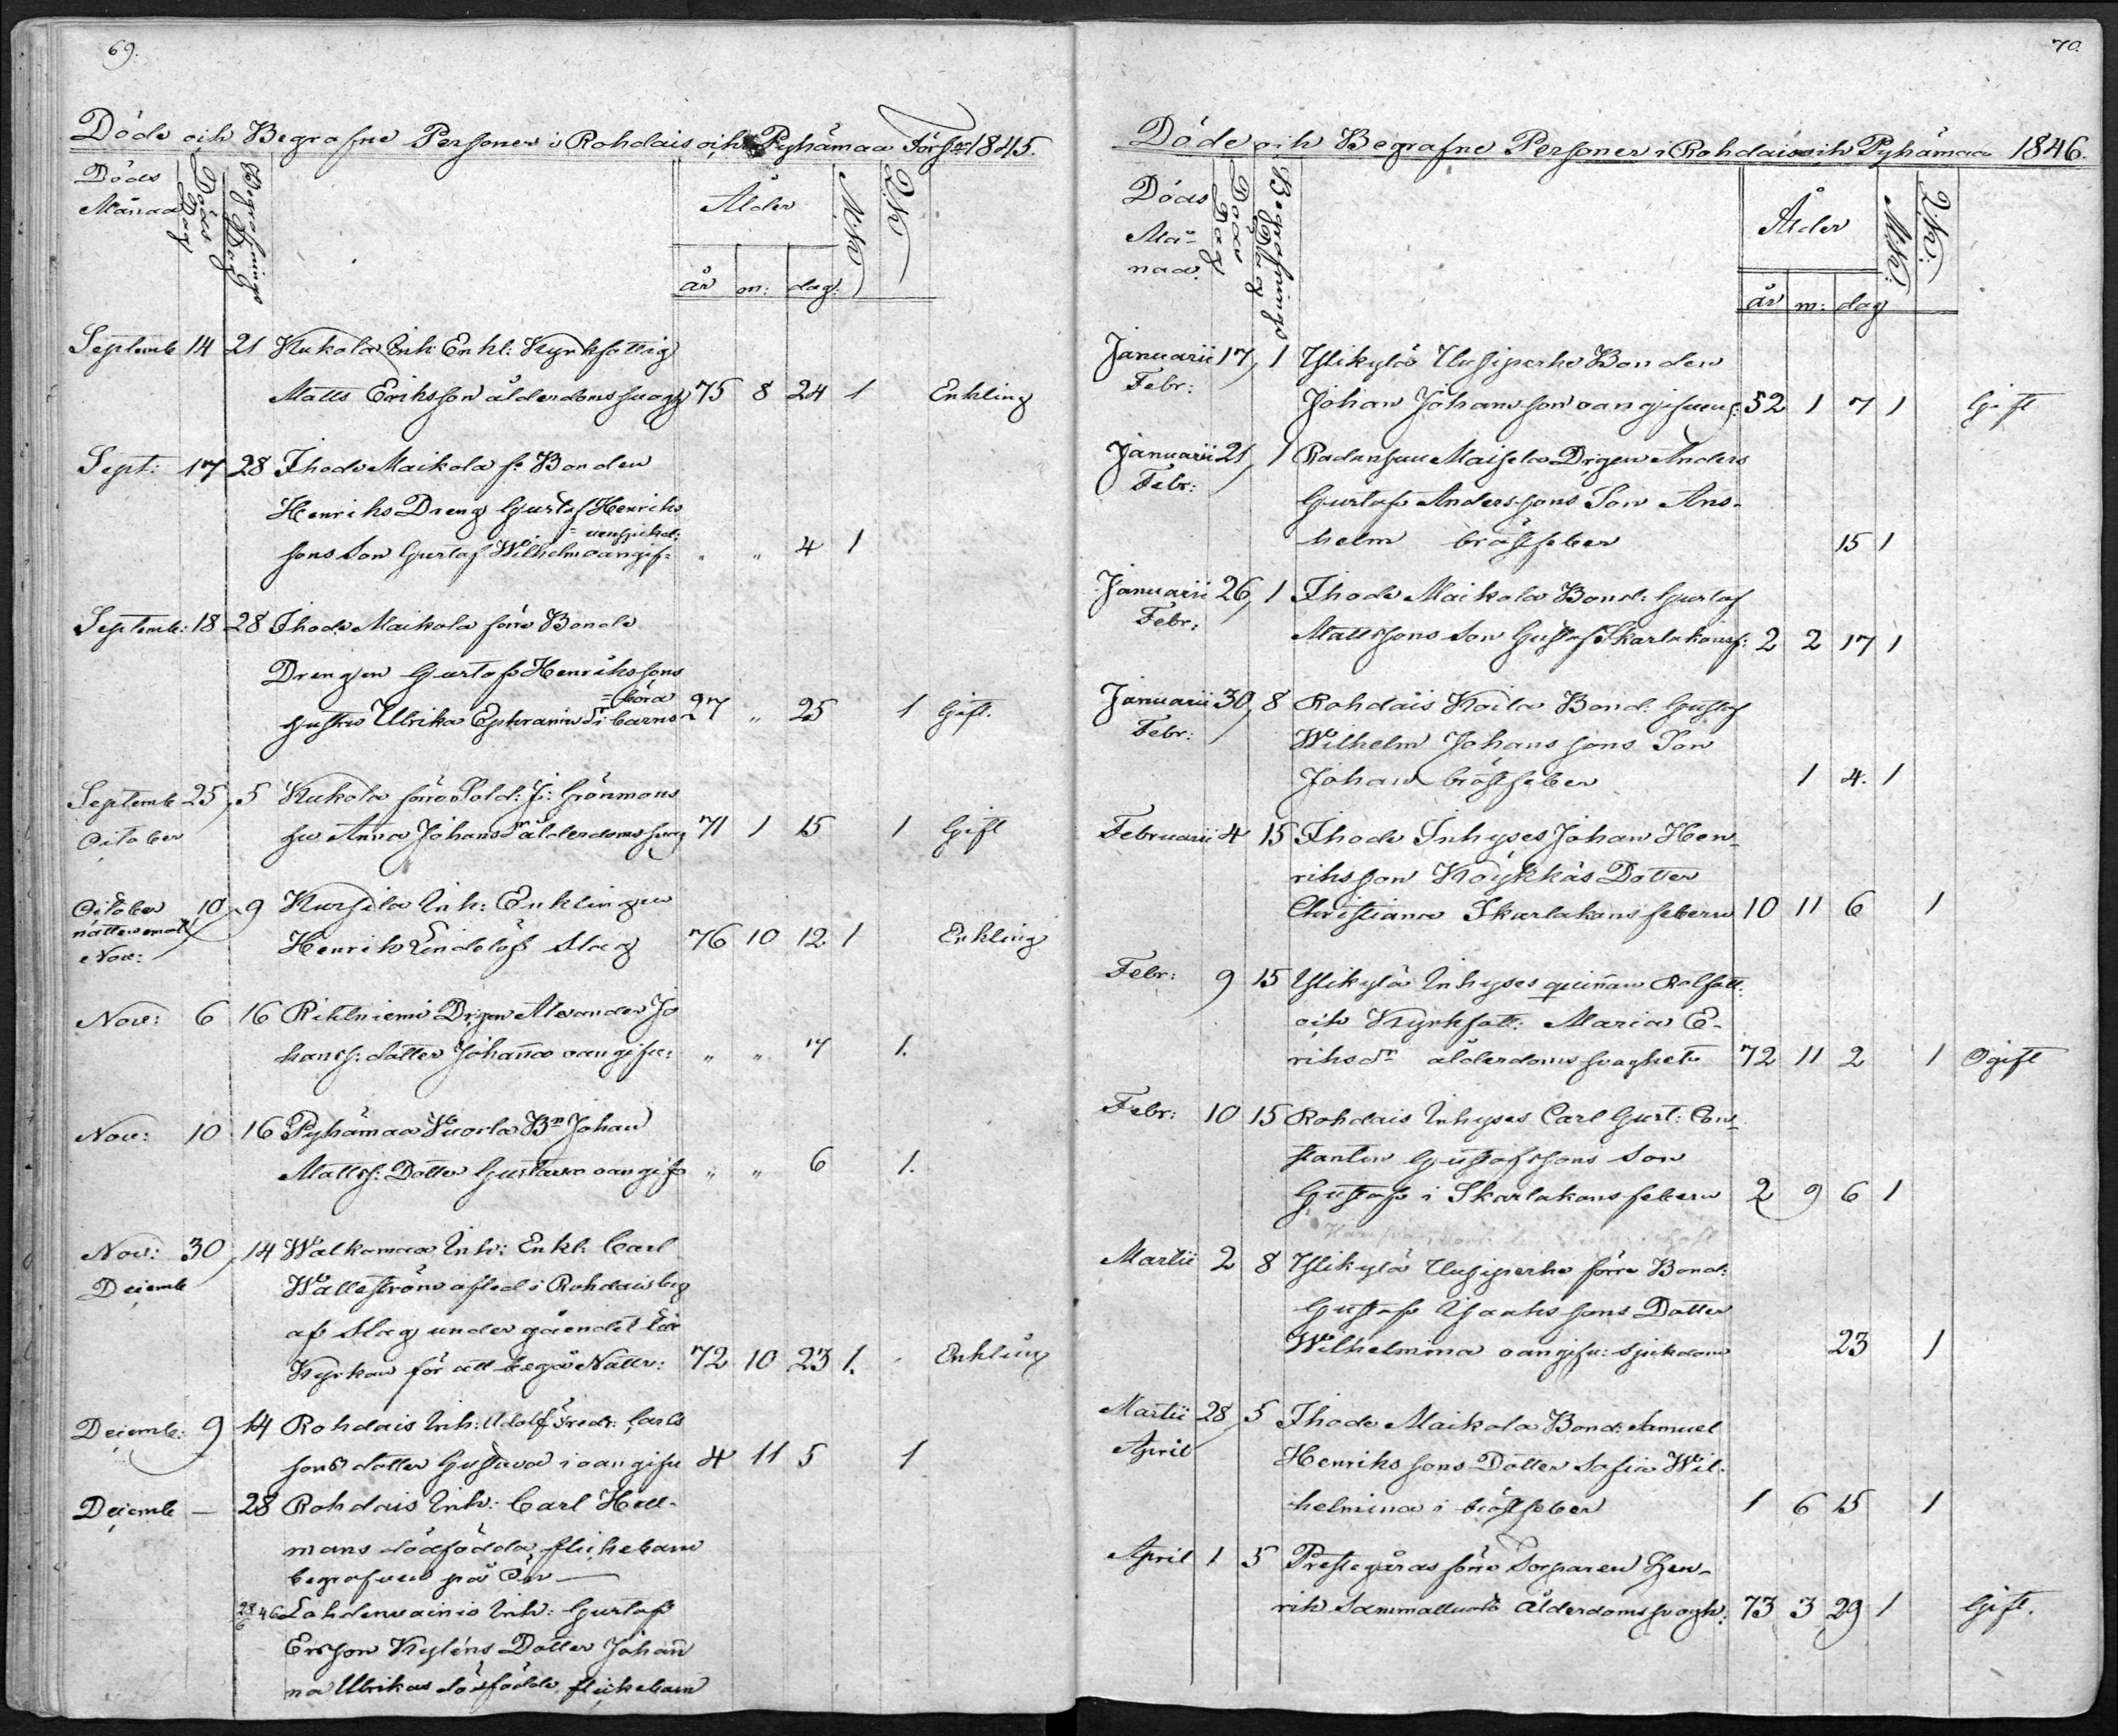 69.
Döde och Begrafne Personer i Rohdais och Pyhämaa Förs: 1845.
Döds Månad
Döds Dag
Begrafnings Dag
Ålder
M.K.
Q.K.
år m: dag:
Septemb 14 21 Kukola Inh. Enkl: Kyrkfattig
Matts Eriksson ålderdomssvagh 75 8 24 1 Enkling
Sept: 17 28 Ihode Maikola f. Bonden
Henriks Dreng Gustaf Henriks
sons Son Gustaf Wilhelm oangif: " " 4 1
Septemb: 18 28 Ihode Maikola förre Bonde
Drengen Gustaf Henrikssons
=börd
hustru Ulrika Ephraims Dr i barns 27 " 25 1 Gift.
Septemb 25, 5 Kukola förre Sold: J: Grönmans
October hu Anna Johans Dr ålderdomssvag 71 1 15 1 Gift
October 10 9 Kursila Inh: Enklingen
Nov: Henrik Lindelöf Slag 76 10 12 1 Enkling
Nov: 6 16 Rihtniemi Drgen Alexander Jo
hanss: dotter Johanna oangifv: " " 7 1.
Nov: 10 16 Pyhämaa Wuorla Bn Johan
Mattss: Dotter Gustava oangif " " 6 1.
Nov: 30, 14 Walkamaa Inh: Enkl: Carl
Decemb Wallström afled i Rohdais by
af Slag under gåendet till
Kyrkan för att begå Nattv: 72 10 23 1. Enkling
Decemb: 9 14 Rohdais Inh: Adolf Fredr: Carls
sons dotter Gustava i oangifv 4 11 5 1
Decemb — 28 Rohdais Inh: Carl Hell-
mans dödfödda flickebarn
begrafven på Ön —
28/6 46 Lahdenvainio Inh: Gustaf
Ersson Kyléns Dotter Johan
na Ulrikas dödfödda flickebarn
70.
Döde och Begrafne Personer i Rohdais och Pyhämaa 1846.
Döds Må-
nad.
Döds Dag
Begrafnings Dag
Ålder
M.K:
Q.K:
år m: dag
Januarii 17, 1 Ylikylä Uusiperhe Bonden
Febr: Johan Johansson oangifven s: 52 1 7 1 Gift
Januarii 21, 1 Radansuu Maisela Drgen Anders
Febr: Gustaf Anderssons Son Ans-
helm bröstfeber 15 1
Januarii 26, 1 Ihode Maikola Bond: Gustaf
Febr: Mattssons Son Gustaf Skarlakansf: 2 2 17 1
Januarii 30, 8 Rohdais Koila Bond: Gustaf
Febr: Wilhelm Johanssons Son
Johan bröstfeber 1 4. 1
Februarii 4 15 Ihode Inhyses Johan Hen-
riksson Köykkäs Dotter
Christiana Skarlakansfebern 10 11 6 1
Febr: 9 15 Ylikylä Inhyses qvinnan Rolfatt:
och Kyrkfatt: Maria E-
riksdr ålderdomssvaghet 72 11 2 1 Ogift
Febr: 10 15 Rohdais Inhyses Carl Gust: Con-
stantin Gustafssons Son
Gustaf i Skarlakansfebern 2 9 6 1
Martii 2 8 Ylikylä Uusiperhe förre Bond:
Gustaf Isaakssons Dotter
Wilhelmina oangifv: sjukdom 23 1
Martii 28, 5 Ihode Maikola Bond: Samuel
April Henrikssons Dotter Sofia Wil-
helmina i bröstfeber 1 6 15 1
April 1 5 Prestegårds förre Torparen Hen-
rik Sammallusto Ålderdomssvagh: 73 3 29 1 Gift.